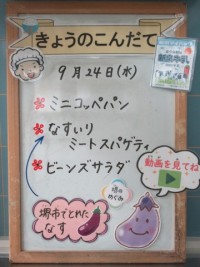 きょうのこんだて
9月24日(水)
ミニコッペパン
なすいり
ミートスパゲティ
ビーンズサラダ
動画を見てね
堺の
めぐみ
堺市でとれた
なす